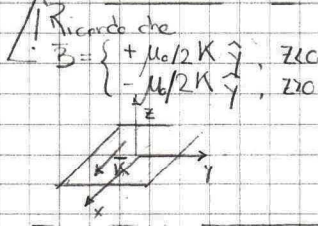 ! Ricordo che
B̄ = { + μ₀/2 K ŷ , z<0
- μ₀/2 K ŷ , z>0
z
K̄
y
x